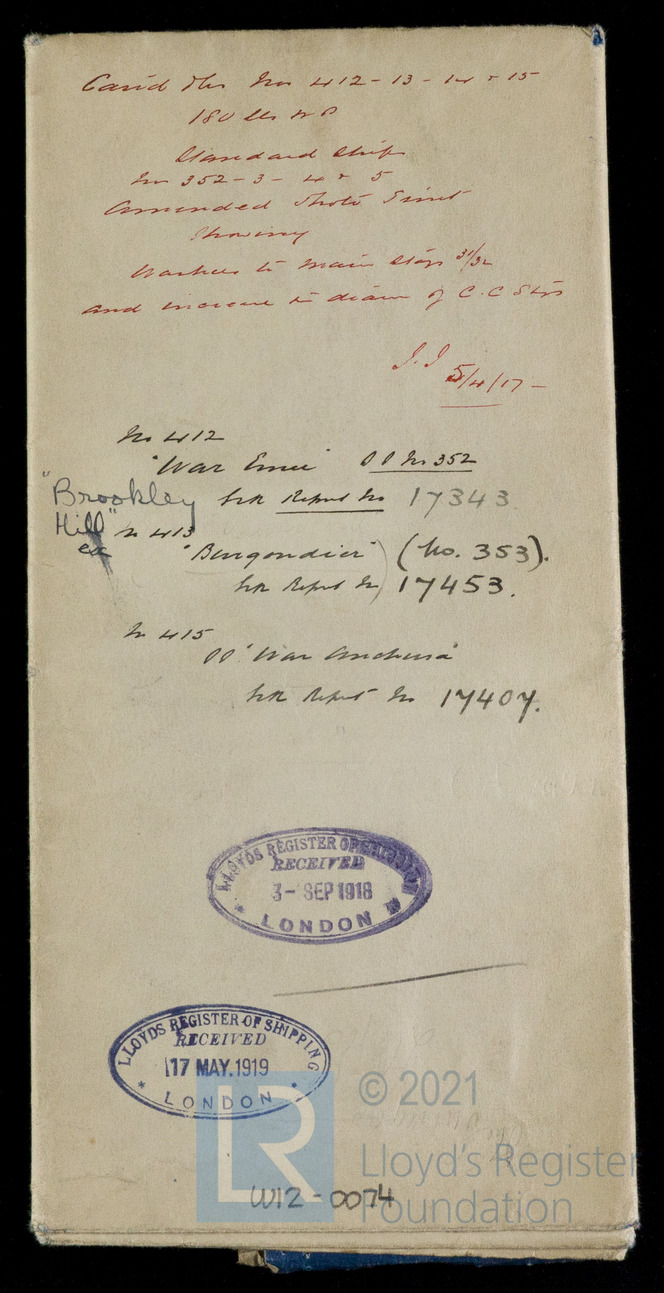 Caird Nos 412-13-14 & 15
180 lbs WP
Standard Ships
No 352-3-4 & 5
Amended Photo Print
Showing
Washers to Main Stays 31/32
and increase in diam of C.C Stays
J.J 5/4/17-
No 412
"War Ernie" No 352
Grk Report No 17343
"Brookley Hill" ex
No 413
"Burgondier" (No. 353).
Grk Report No 17453.
No 415
"War Anchusa"
Grk Report No 17407.
LLOYDS REGISTER OF SHIPPING
RECEIVED
3- SEP 1918
LONDON
LLOYDS REGISTER OF SHIPPING
RECEIVED
17 MAY. 1919
LONDON
LR
© 2021
Lloyd's Register
Foundation
W12-0074